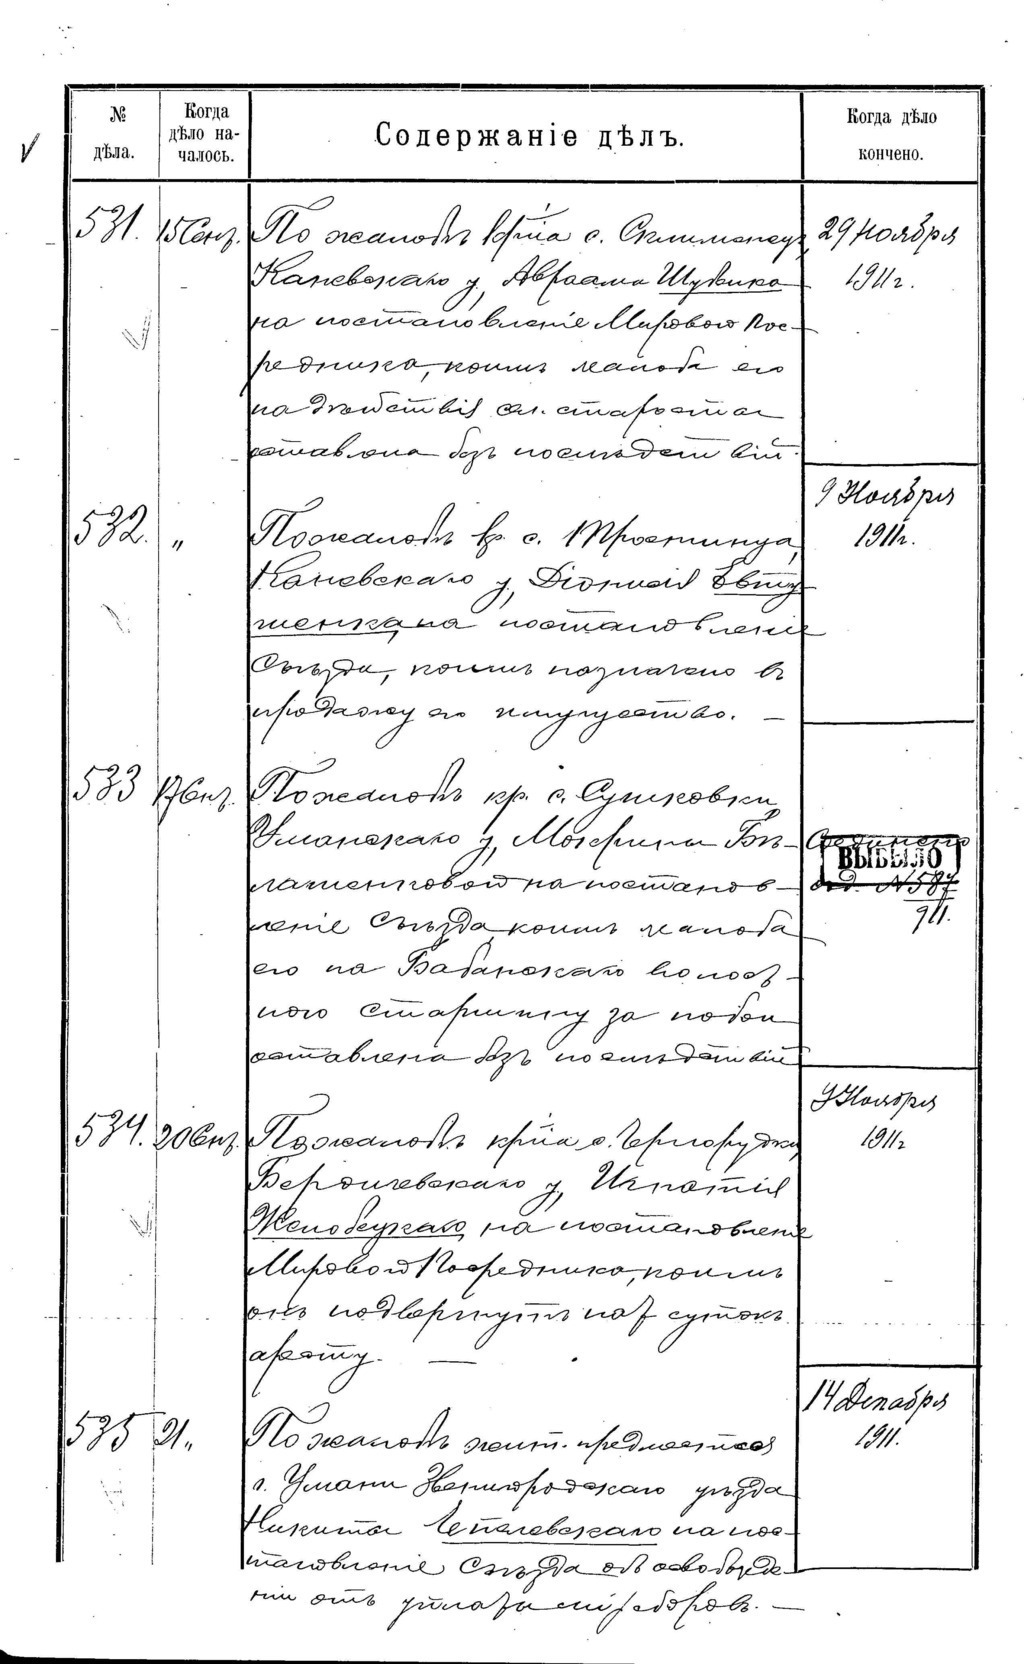 №
дѣла.
Когда
дѣло на-
чалось.
Содержаніе дѣлъ.
Когда дѣло
кончено.
531.
15 Сент.
По жалобѣ кр-на с.
Каневскаго у, Авраама
на постановленіе Мирового Пос-
редника, коимъ жалоба его
на дѣйствія сел. старосты
оставлена безъ послѣдствій.
29 Ноября
1911г.
532.
"
По жалобѣ кр. с. Тростинца,
Каневскаго у, Діонисія Евту-
шенка, на постановленіе
Съѣзда, коимъ назначено въ
продажу его имущество. —
9 Ноября
1911г.
533
17 Сент.
По жалобѣ кр. с. Сушковки,
Уманскаго у, Мокрины Бѣ-
на постанов-
леніе Съѣзда, коимъ жалоба
его на Бабанскаго волост-
ного старшину за побои
оставлена безъ послѣдствій
Соединено
ВЫБЫЛО
№ 587
911.
534.
20 Сент.
По жалобѣ кр-на с. Чернорудки,
Бердичевскаго у, Игнатія
на постановленіе
Мирового Посредника, коимъ
онъ подвергнутъ на 7 сутокъ
аресту. —
9 Ноября
1911г
535
21 "
По жалобѣ жит. предмѣстья
г. Умани Звенигородскаго уѣзда
Никиты Чепелевскаго на пос-
тановленіе Съѣзда объ освобожде-
ніи отъ уплаты сборовъ. —
14 Декабря
1911.